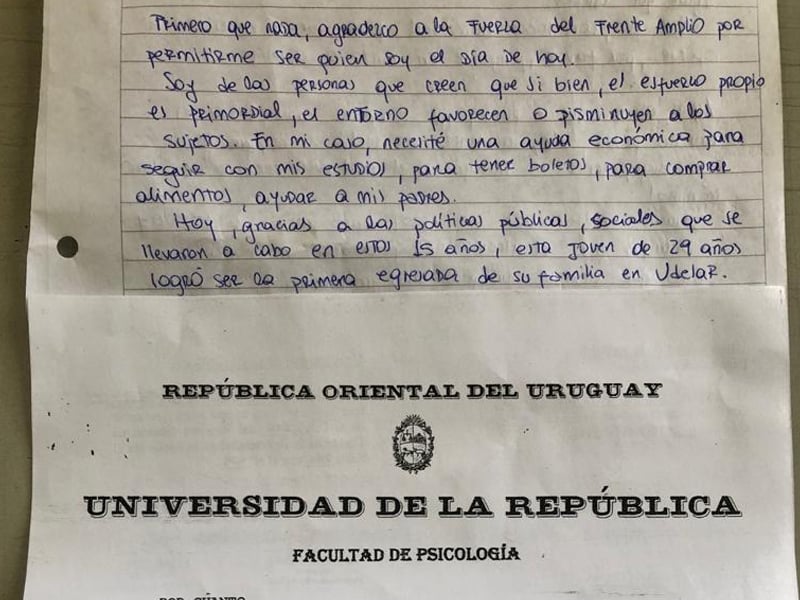 Primero que nada, agradezco a la Fuerza del Frente Amplio por
permitirme ser quien soy el día de hoy.
Soy de las personas que creen que si bien, el esfuerzo propio
es primordial, el entorno favorecen o disminuyen a los
sujetos. En mi caso, necesité una ayuda económica para
seguir con mis estudios, para tener boletos, para comprar
alimentos, ayudar a mis padres.
Hoy, gracias a las políticas públicas, sociales que se
llevaron a cabo en estos 15 años, esta joven de 29 años
logró ser la primera egresada de su familia en UdelaR.
REPÚBLICA ORIENTAL DEL URUGUAY
UNIVERSIDAD DE LA REPÚBLICA
FACULTAD DE PSICOLOGÍA
POR CUANTO